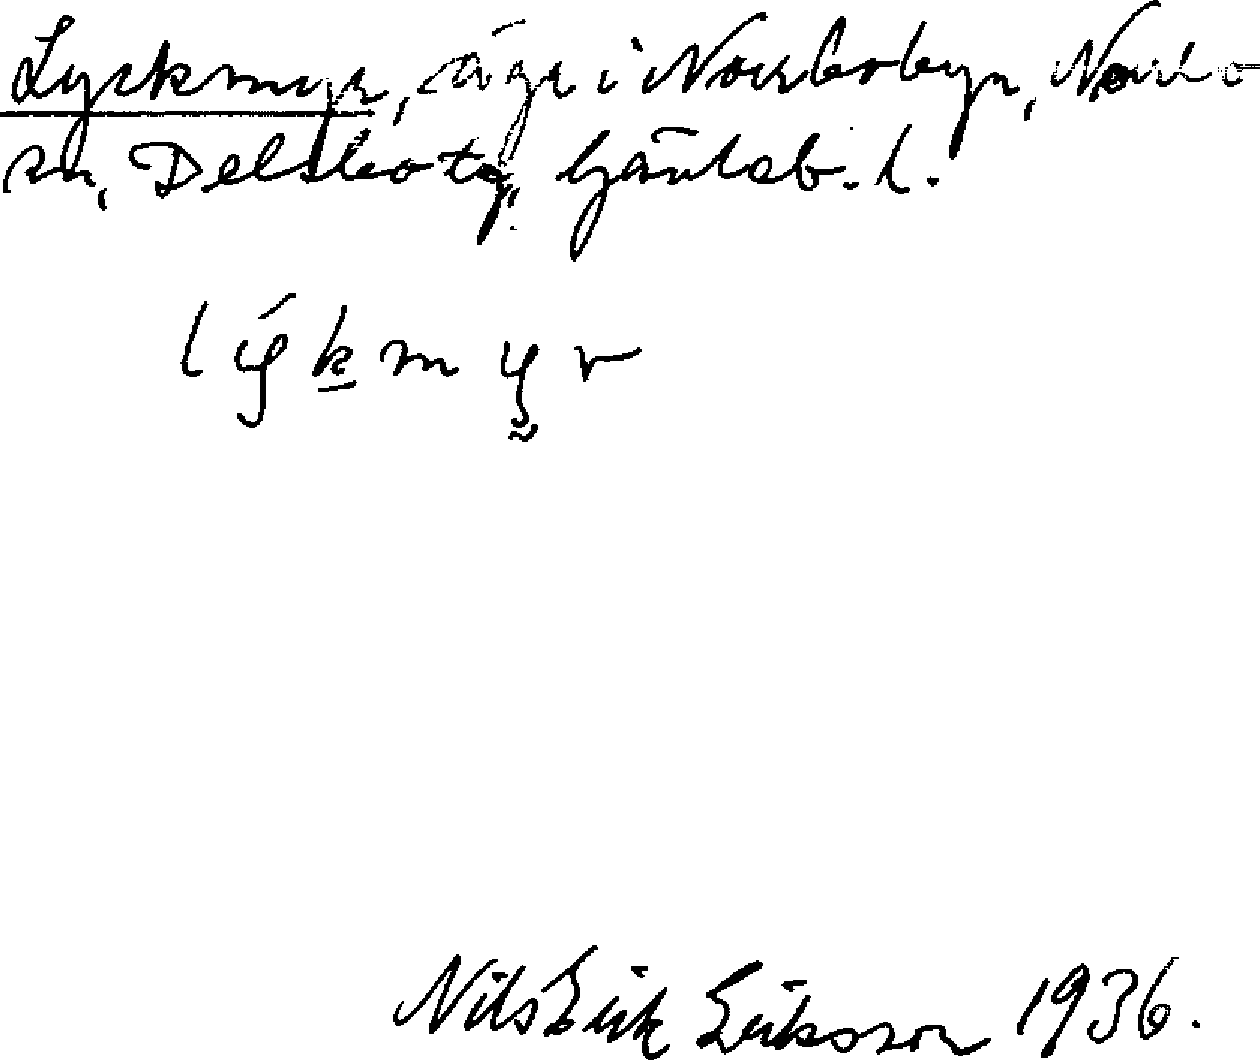 Lyckmyr, äga i Norrbobyn, Norrbo
sn, Delsbo tg, Gävleb. l.
lýkmyr
Nils Erik Eriksson 1936.